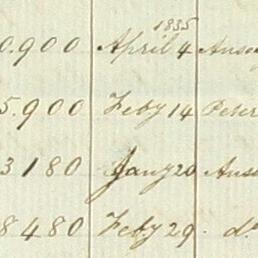 1835
0.900 April 4 Anse
5.900 Feby 14 Peter
3180 Jany 20 Anse
8480 Feby 29. do